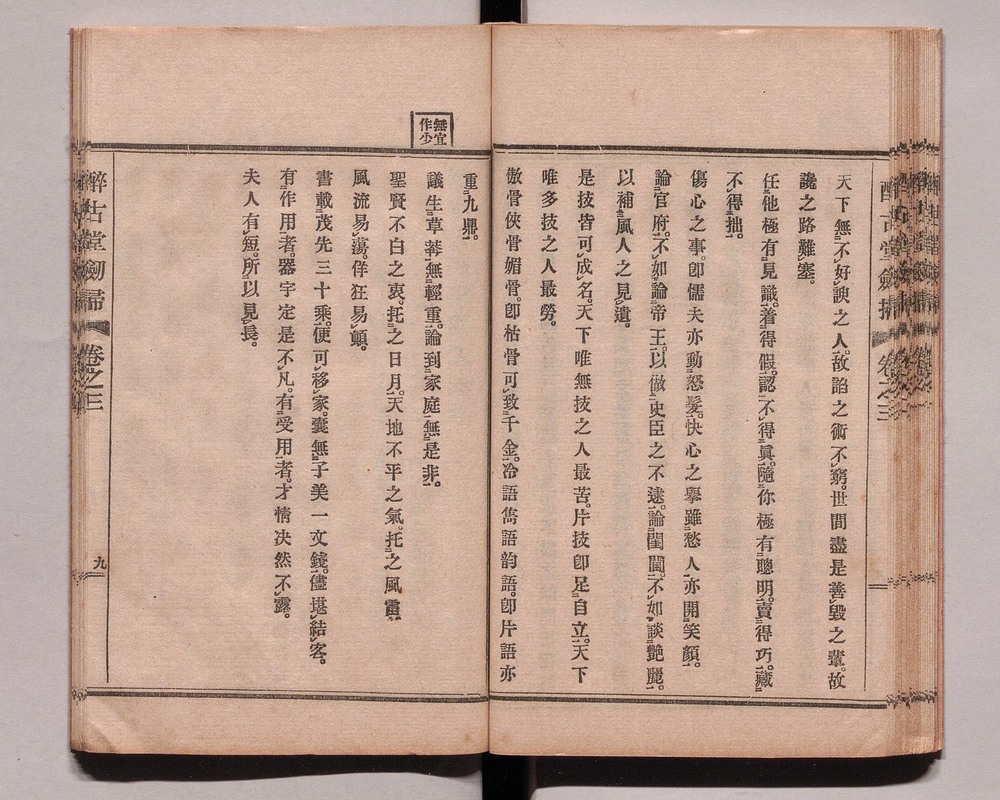 天下無不好諛之人。故諂之術不窮。世間盡是善毀之輩。故
讒之路難塞。
任他極有見識。着得假。認不得眞。隨你極有聰明。賣得巧。藏
不得拙。
傷心之事。卽懦夫亦動怒髮。快心之擧。雖愁人亦開笑顏。
論官府。不如論帝王。以倣史臣之不逮。論閨閫。不如談艷麗。
以補風人之見遺。
是技皆可成名。天下唯無技之人最苦。片技卽足自立。天下
唯多技之人最勞。
傲骨俠骨媚骨。卽枯骨可致千金。冷語雋語韵語。卽片語亦
無宜
作少
重九鼎。
議生草莽無輕重。論到家庭無是非。
聖賢不白之衷。托之日月。天地不平之氣。托之風雷。
風流易蕩。佯狂易顚。
書載茂先三十乘。便可移家。囊無子美一文錢。儘堪結客。
有作用者。器宇定是不凡。有受用者。才情決然不露。
夫人有短。所以見長。
醉古堂劒掃
卷之三
九